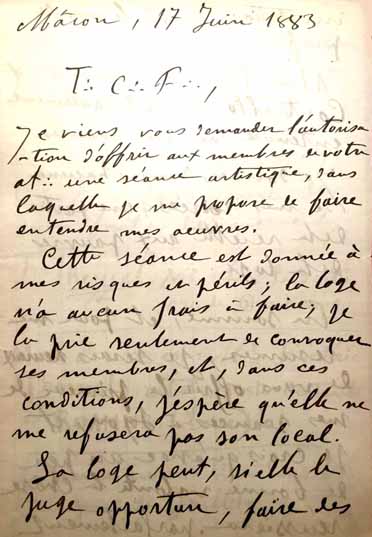 Mâcon, 17 Juin 1883
T∴ C∴ F∴,
Je viens vous demander l'autorisa
-tion d'offrir aux membres de votre
at∴ une séance artistique, dans
laquelle je me propose de faire
entendre mes oeuvres.
Cette séance est donnée à
mes risques et périls; la loge
n'a aucun frais à faire; je
la prie seulement de convoquer
ses membres, et, dans ces
conditions, j'espère qu'elle ne
me refusera pas son local.
La loge peut, si elle le
juge opportun, faire des